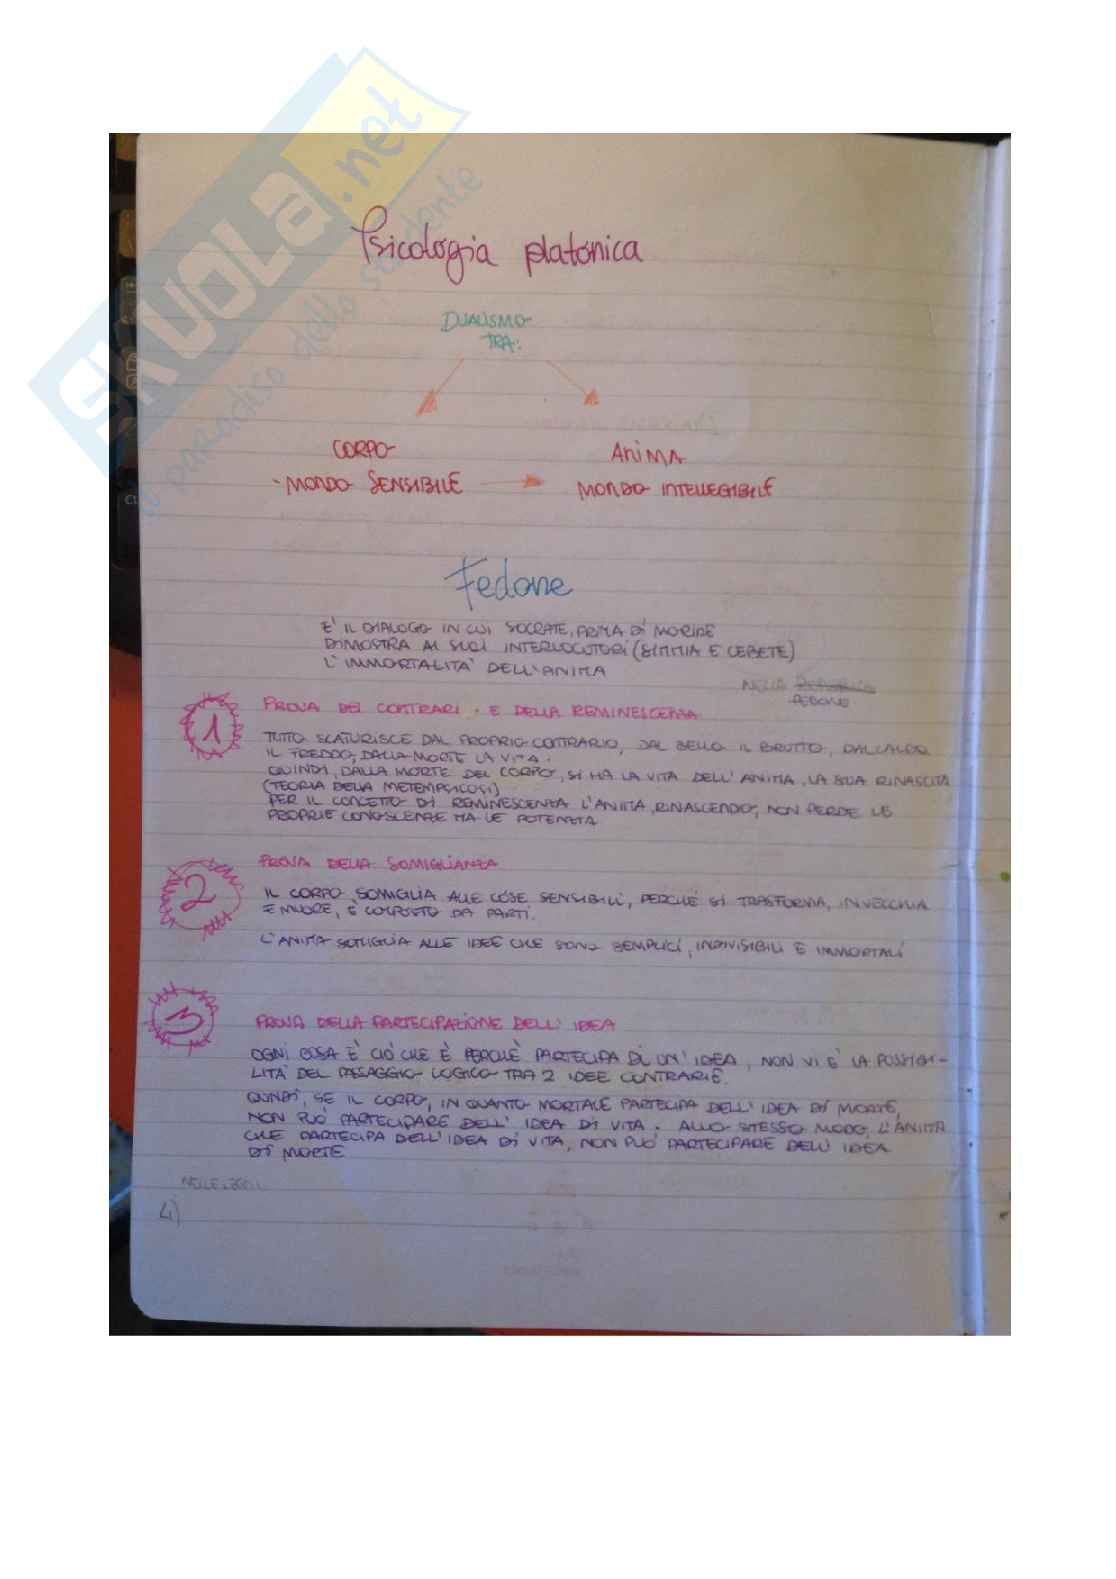 SKUOLA.net
il paradiso dello studente
Psicologia platonica
DUALISMO
TRA:
CORPO
ANIMA
MONDO SENSIBILE
MONDO INTELLEGIBILE
Fedone
E' IL DIALOGO IN CUI SOCRATE, PRIMA DI MORIRE
DIMOSTRA AI SUOI INTERLOCUTORI (SIMMIA E CEBETE)
L'IMMORTALITA' DELL'ANIMA
NELLA
FEDONE
1
PROVA DEI CONTRARI E DELLA REMINESCENZA
TUTTO SCATURISCE DAL PROPRIO CONTRARIO, DAL BELLO IL BRUTTO, DAL CALDO
IL FREDDO, DALLA MORTE LA VITA.
QUINDI, DALLA MORTE DEL CORPO, SI HA LA VITA DELL'ANIMA, LA SUA RINASCITA
(TEORIA DELLA METEMPSICOSI)
PER IL CONCETTO DI REMINESCENZA L'ANIMA, RINASCENDO, NON PERDE LE
PROPRIE CONOSCENZE MA LE POTENZIA
2
PROVA DELLA SOMIGLIANZA
IL CORPO SOMIGLIA ALLE COSE SENSIBILI, PERCHÈ SI TRASFORMA, INVECCHIA
E MUORE, È COMPOSTO DA PARTI.
L'ANIMA SOMIGLIA ALLE IDEE CHE SONO SEMPLICI, INDIVISIBILI E IMMORTALI
3
PROVA DELLA PARTECIPAZIONE DELL'IDEA
OGNI COSA È CIÒ CHE È PERCHÈ PARTECIPA DI UN'IDEA, NON VI E' LA POSSIBI-
LITÀ DEL PASSAGGIO LOGICO TRA 2 IDEE CONTRARIE.
QUINDI, SE IL CORPO, IN QUANTO MORTALE PARTECIPA DELL'IDEA DI MORTE,
NON PUÒ PARTECIPARE DELL'IDEA DI VITA. ALLO STESSO MODO, L'ANIMA
CHE PARTECIPA DELL'IDEA DI VITA, NON PUÒ PARTECIPARE DELL'IDEA
DI MORTE
NELLE LEGGI
4)